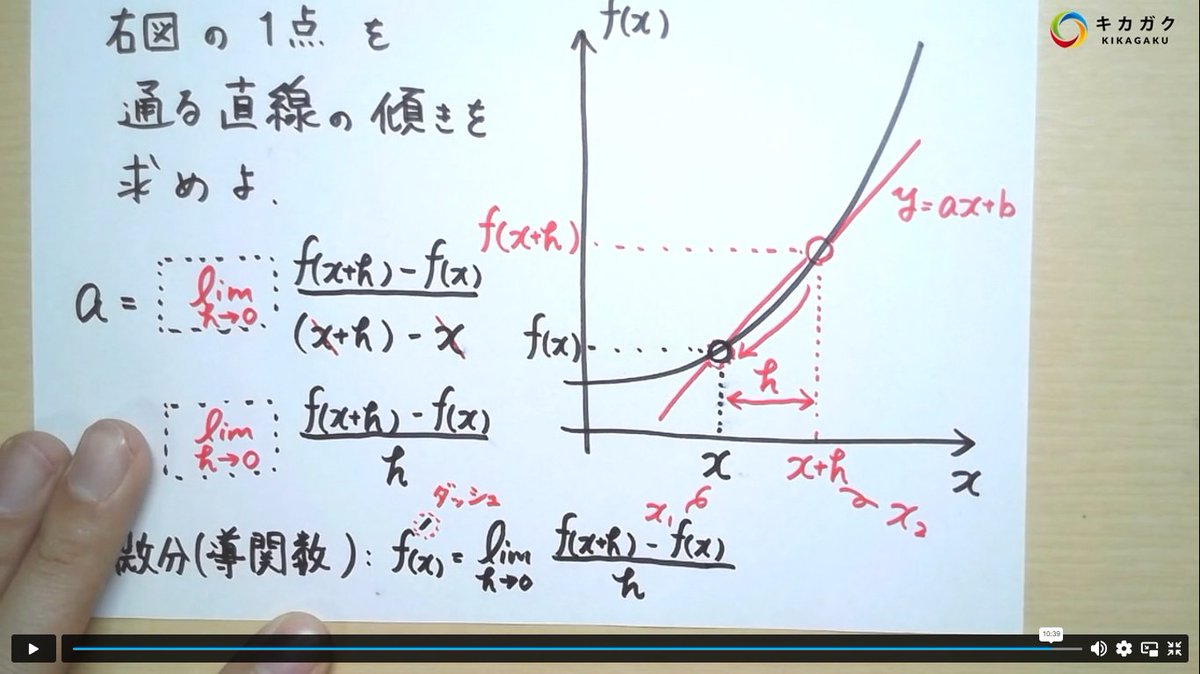 右図の1点を
通る直線の傾きを
求めよ.
a = lim h→0 f(x+h) - f(x) / (x+h) - x
lim h→0 f(x+h) - f(x) / h
ダッシュ
微分(導関数): f'(x) = lim h→0 f(x+h) - f(x) / h
f(x)
y=ax+b
f(x+h)
f(x)
h
x
x+h
x
x₁
x₂
キカガク
KIKAGAKU
10:39